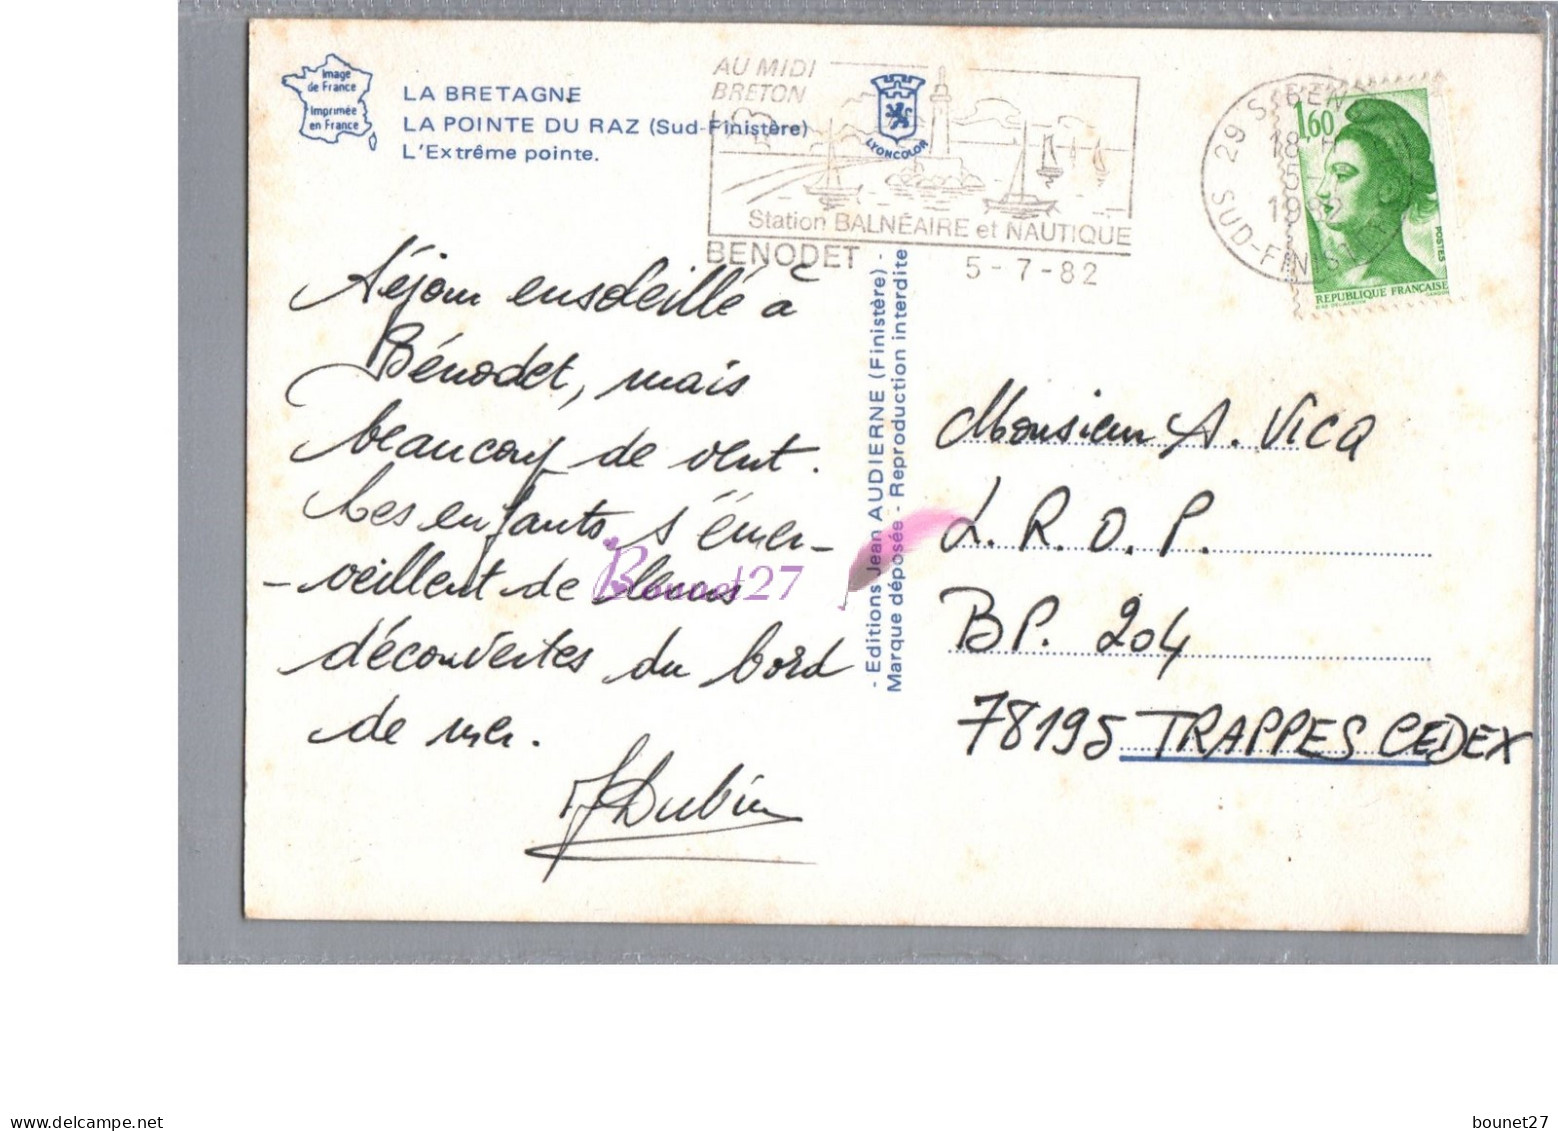 Image
de France
Imprimée
en France
LA BRETAGNE
LA POINTE DU RAZ (Sud-Finistère)
L'Extrême pointe.
AU MIDI
BRETON
LYONCOLOR
Station BALNÉAIRE et NAUTIQUE
BENODET
5-7-82
29
18
5-7
1982
SUD-FINISTERE
1,60
POSTES
REPUBLIQUE FRANÇAISE
GANDON
Séjour ensoleillé à
Bénodet, mais
beaucoup de vent.
Les enfants s'émer-
-veillent de leurs
découvertes du bord
de mer.
- Editions Jean AUDIERNE (Finistère) -
Marque déposée - Reproduction interdite
Monsieur A. VICQ
L.R.O.P.
BP. 204
78195 TRAPPES CEDEX
Bounet27
delcampe.net
bounet27